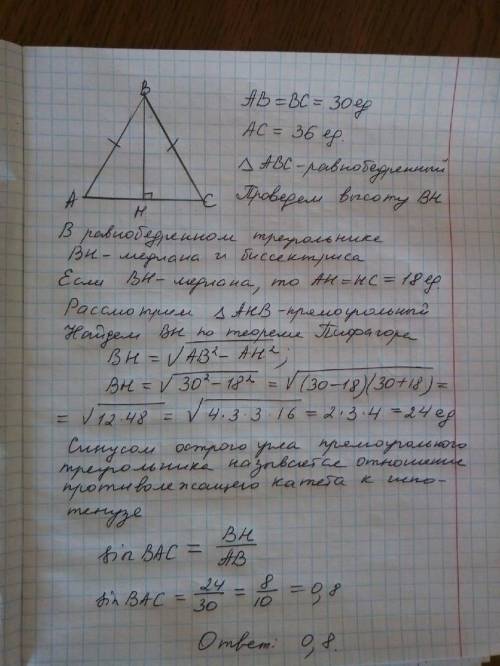 B
A
H
C
AB = BC = 30 ед
AC = 36 ед.
△ ABC - равнобедренный
Проведем высоту BH
В равнобедренном треугольнике
BH - медиана и биссектриса
Если BH - медиана, то AH = HC = 18 ед.
Рассмотрим △ AHB - прямоугольный
Найдем BH по теореме Пифагора
BH = √(AB² - AH²);
BH = √(30² - 18²) = √((30-18)(30+18)) =
= √(12·48) = √(4·3·3·16) = 2·3·4 = 24 ед
Синусом острого угла прямоугольного
треугольника называется отношение
противолежащего катета к гипо-
тенузе
sin BAC = BH/AB
sin BAC = 24/30 = 8/10 = 0,8
Ответ: 0,8.